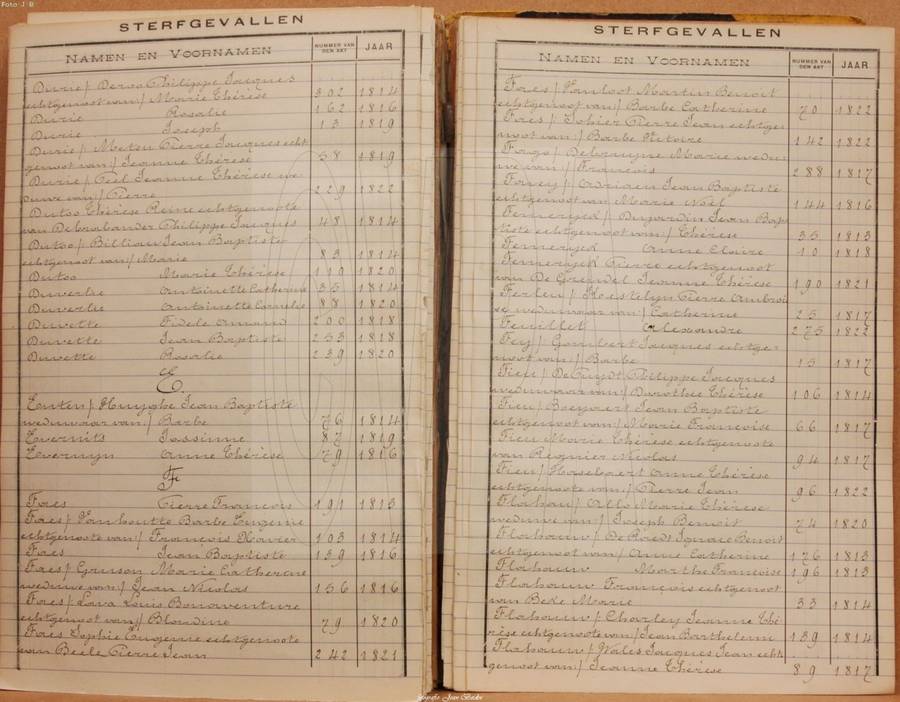 Foto: J B
STERFGEVALLEN
NAMEN EN VOORNAMEN NUMMER VAN DEN AKT JAAR
Durie / Deroo Philippe Jacques
echtgenoot van / Marie Thérèse 302 1814
Durie Rosalie 162 1816
Durie Joseph 13 1819
Durie / Meteu Pierre Jacques echt
genoot van / Jeanne Thérèse 58 1819
Durie / Peel Jeanne Thérèse we
duwe van / Pierre 229 1822
Dutoo Thérèse Reine echtgenoote
van Debrabander Philippe Jacques 48 1814
Dutoo / Billiau Jean Baptiste
echtgenoot van / Marie 83 1814
Dutoo Marie Thérèse 110 1820
Duverlie Antoinette Catherine 35 1814
Duverlie Antoinette Cornelie 88 1820
Duvette Fidele Armand 200 1818
Duvette Jean Baptiste 253 1818
Duvette Rosalie 239 1820
E
Enten / Huyghe Jean Baptiste
weduwaar van / Barbe 76 1814
Evernits Jossinne 87 1819
Evermyn Anne Thérèse 79 1816
F
Faes Pierre François 191 1813
Faes / Vanhoutte Barbe Eugenie
echtgenoote van / François Xavier 103 1814
Faes Jean Baptiste 139 1816
Faes / Gruson Marie Catherine
weduwe van / Jean Nicolas 156 1816
Faes / Lava Louis Bonaventure
echtgenoot van / Blandine 79 1820
Faes Sophie Eugenne echtgenoote
van Beele Pierre Jean 242 1821
STERFGEVALLEN
NAMEN EN VOORNAMEN NUMMER VAN DEN AKT JAAR
Faes / Vanloot Martin Benoit
echtgenoot van / Barbe Catherine 70 1822
Faes / Johier Pierre Jean echtge
noot van / Barbe Victoire 142 1822
Fago / Debruyne Marie wedu
we van / François 288 1817
Favey / Adriaen Jean Baptiste
echtgenoot van Marie Noël 144 1816
Femeryck / Dujardin Jean Bap
tiste echtgenoot van / Thérèse 35 1813
Femeryck Anne Claire 10 1818
Femeryck Pierre echtgenoot
van De Grendel Jeanne Thérèse 190 1821
Ferlin / Koestelyn Pierre Ambroi
se weduwaar van / Catherine 25 1817
Feuillet Alexandre 275 1822
Fey / Gombert Jacques echtge
noot van / Barbe 15 1817
Fieu / De Tuydt Philippe Jacques
weduwaar van / Dorothée Thérèse 106 1814
Fieu / Boeyaert Jean Baptiste
echtgenoot van / Marie Françoise 66 1817
Fieu Marie Thérèse echtgenoote
van Régnier Nicolas 94 1817
Fieu / Hasebaert Anne Thérèse
echtgenoote van / Pierre Jean 96 1822
Flahau / Allo Marie Thérèse
weduwe van / Joseph Benoit 74 1820
Flahauw / De Raedt Ignace Benoit
echtgenoot van / Anne Catherine 176 1813
Flahauw Marthe Françoise 196 1813
Flahauw François echtgenoot
van Beke Marie 33 1814
Flahauw / Charley Jeanne Thé
rèse echtgenoote van / Jean Barthelemi 139 1814
Flahauw / Wales Jacques Jean echt
genoot van / Jeanne Thérèse 89 1817